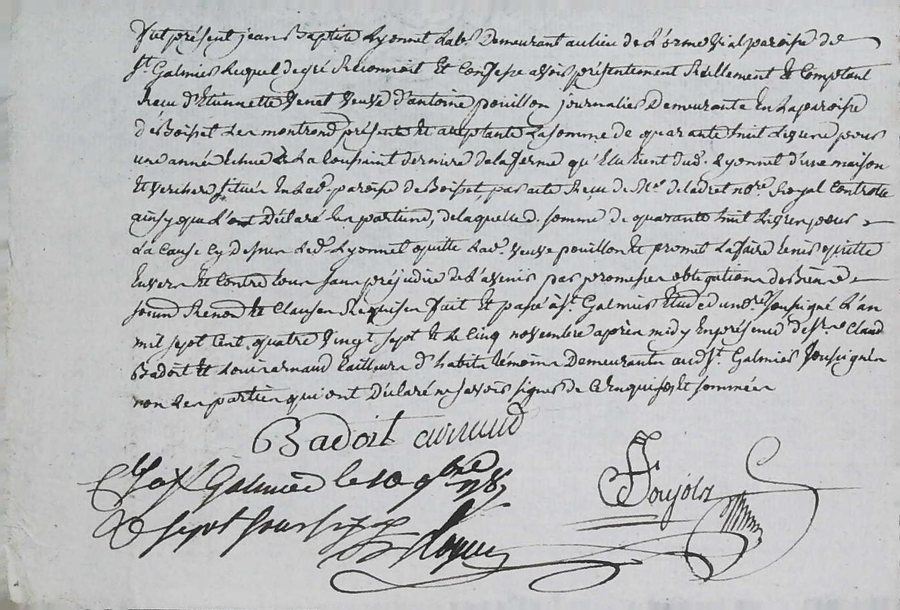 fut présent jean Baptiste Lyonnet lab.r Demeurant au lieu de L'orme vial paroisse de
St. Galmier Lequel de gré Reconnoit Et Confesse avoir présentement Réellement Et Comptant
Recu d'Etiennette Venet veuve d'antoine pouillon journalier Demeurante En La paroisse
de Boisset Les montrond présente Et acceptante La somme de quarante huit Livres pour
une année Echue à La toussaint derniere de la ferme qu'Elle tient dud. Lyonnet d'une maison
Et verchere située En Lad. paroisse de Boisset par acte Recu de Me. notre Royal Controllé
ainsy que L'ont Déclaré Les parties, de laquelle d. somme de quarante huit Livres pour
La Cause Cy dessus Led. Lyonnet quitte Lad. veuve pouillon Et promet La faire tenir quitte
Envers Et Contre tous sans préjudice de L'avenir par promesses obligations des biens
soumis Renon. Et Clauses Requises fait Et passé à St. Galmier Etude du nore. soussigné L'an
mil sept Cent quatre vingt sept Et Le Cinq novembre après midy En présence de Sr. Claude
Badoit Et Louis arnaud tailleurs d'habits témoins Demeurants aud. St. Galmier soussignés
non Les parties qui ont Déclaré ne savoir signer de Ce Requises Et sommées
Badoit arnaud
St Galmier le 10 9bre 1787
sept sous six